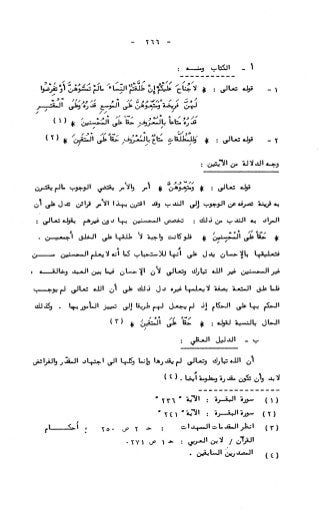 - ٢٦٦ -
أ - الكتاب ومنه :
١- قوله تعالى : * لا جُنَاحَ عَلَيْكُمْ إِنْ طَلَّقْتُمُ النِّسَاءَ مَالَمْ تَمَسُّوهُنَّ أَوْ تَفْرِضُوا
لَهُنَّ فَرِيضَةً وَمَتِّعُوهُنَّ عَلَى الْمُوسِعِ قَدَرُهُ وَعَلَى الْمُقْتِرِ
قَدَرُهُ مَتَاعًا بِالْمَعْرُوفِ حَقًّا عَلَى الْمُحْسِنِينَ * (١)
٢- قوله تعالى : * وَلِلْمُطَلَّقَاتِ مَتَاعٌ بِالْمَعْرُوفِ حَقًّا عَلَى الْمُتَّقِينَ * (٢)
وجه الدلالة من الآيتين :
قوله تعالى : * وَمَتِّعُوهُنَّ * أمر والأمر يقتضي الوجوب مالم يقترن
به قرينة تصرفه عن الوجوب إلى الندب وقد اقترن بهذا الأمر قرائن تدل على أن
المراد به الندب من ذلك : تخصيص المحسنين بها دون غيرهم بقوله تعالى :
* حَقًّا عَلَى الْمُحْسِنِينَ * فلو كانت واجبة لأطلقها على الخلق أجمعين .
فتعليقها بالإحسان يدل على أنها للاستحباب كما أنه لا يعلم المحسنين من
غير المحسنين غير الله تبارك وتعالى لأن الإحسان فيما بين العبد وخالقه ،
فلما علق المتعة بصفة لا يعلمها غيره دل ذلك على أن الله تعالى لم يوجب
الحكم بها على الحكام إذ لم يجعل لهم طريقا إلى تمييز المأمور بها . وكذلك
الحال بالنسبة لقوله : * حَقًّا عَلَى الْمُتَّقِينَ * (٣)
ب - الدليل العقلي :
أن الله تبارك وتعالى لم يقدرها وإنما وكلها إلى اجتهاد المقدر والفرائض
لابد وأن تكون مقدرة ومعلومة أيضا . (٤)
(١) سورة البقرة : الآية "٢٣٦"
(٢) سورة البقرة : الآية "٢٤١"
(٣) انظر المقدمات الممهدات : حـ ٢ ص ٢٥٠ : أحكام
القرآن / لابن العربي : حـ ١ ص ٢٧١.
(٤) المصدرين السابقين .